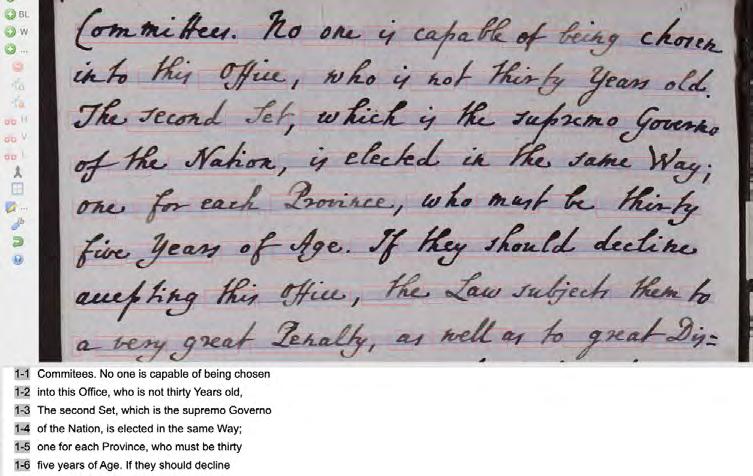 BL
W
...
H
V
L
...
Committees. No one is capable of being chosen
into this Office, who is not thirty Years old.
The second Set, which is the supremo Governo
of the Nation, is elected in the same Way;
one for each Province, who must be thirty
five Years of Age. If they should decline
accepting this Office, the Law subjects them to
a very great Penalty, as well as to great Dis=
1-1 Commitees. No one is capable of being chosen
1-2 into this Office, who is not thirty Years old,
1-3 The second Set, which is the supremo Governo
1-4 of the Nation, is elected in the same Way;
1-5 one for each Province, who must be thirty
1-6 five years of Age. If they should decline